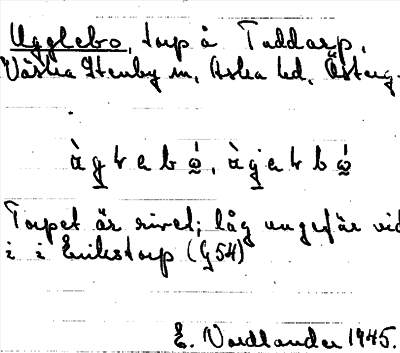 Ugglebo, torp å Toddarp,
Västra Stenby sn, Aska hd, Österg.
Torpet är rivet; låg ungefär vid
i i Erikstorp (G54)
E. Nordlander 1945.